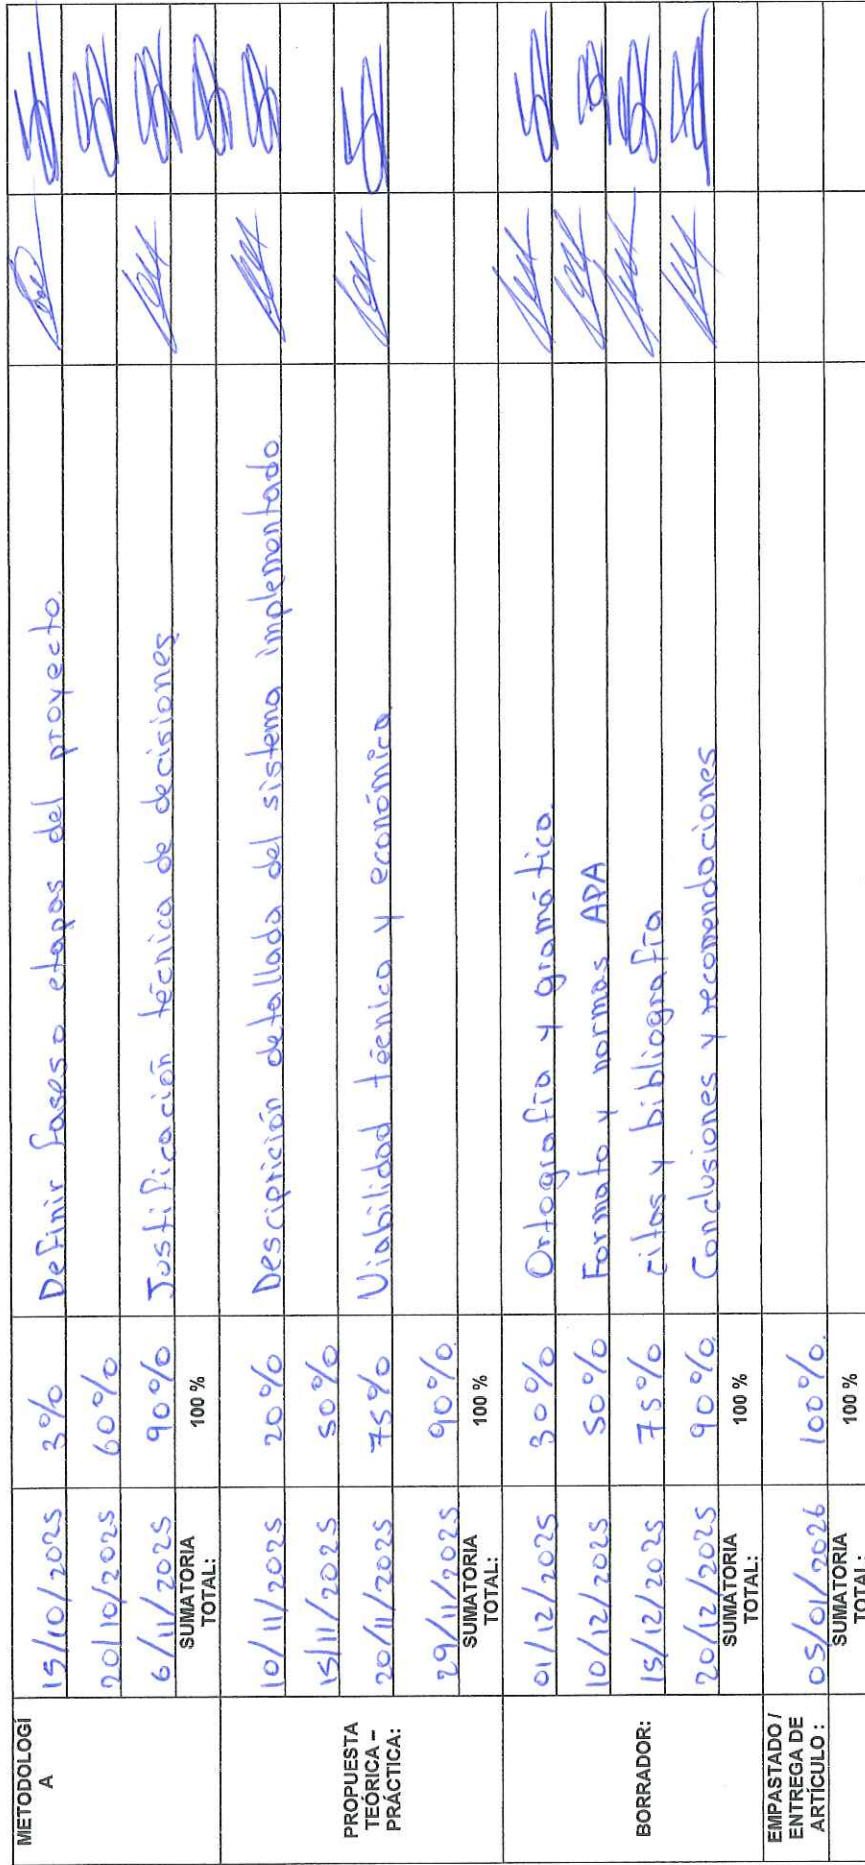 METODOLOGÍ
A
15/10/2025 3% Definir fases o etapas del proyecto.
20/10/2025 60%
6/11/2025 90% Justificación técnica de decisiones
SUMATORIA
TOTAL:
100 %
PROPUESTA
TEÓRICA –
PRÁCTICA:
10/11/2025 20% Descripición detallada del sistema implementado
15/11/2025 50%
20/11/2025 75% Viabilidad técnica y económica
29/11/2025 90%
SUMATORIA
TOTAL:
100 %
BORRADOR:
01/12/2025 30% Ortografía y gramática.
10/12/2025 50% Formato y normas APA
15/12/2025 75% citas y bibliografía
20/12/2025 90% Conclusiones y recomendaciones
SUMATORIA
TOTAL:
100 %
EMPASTADO /
ENTREGA DE
ARTÍCULO :
05/01/2026 100%
SUMATORIA
TOTAL:
100 %